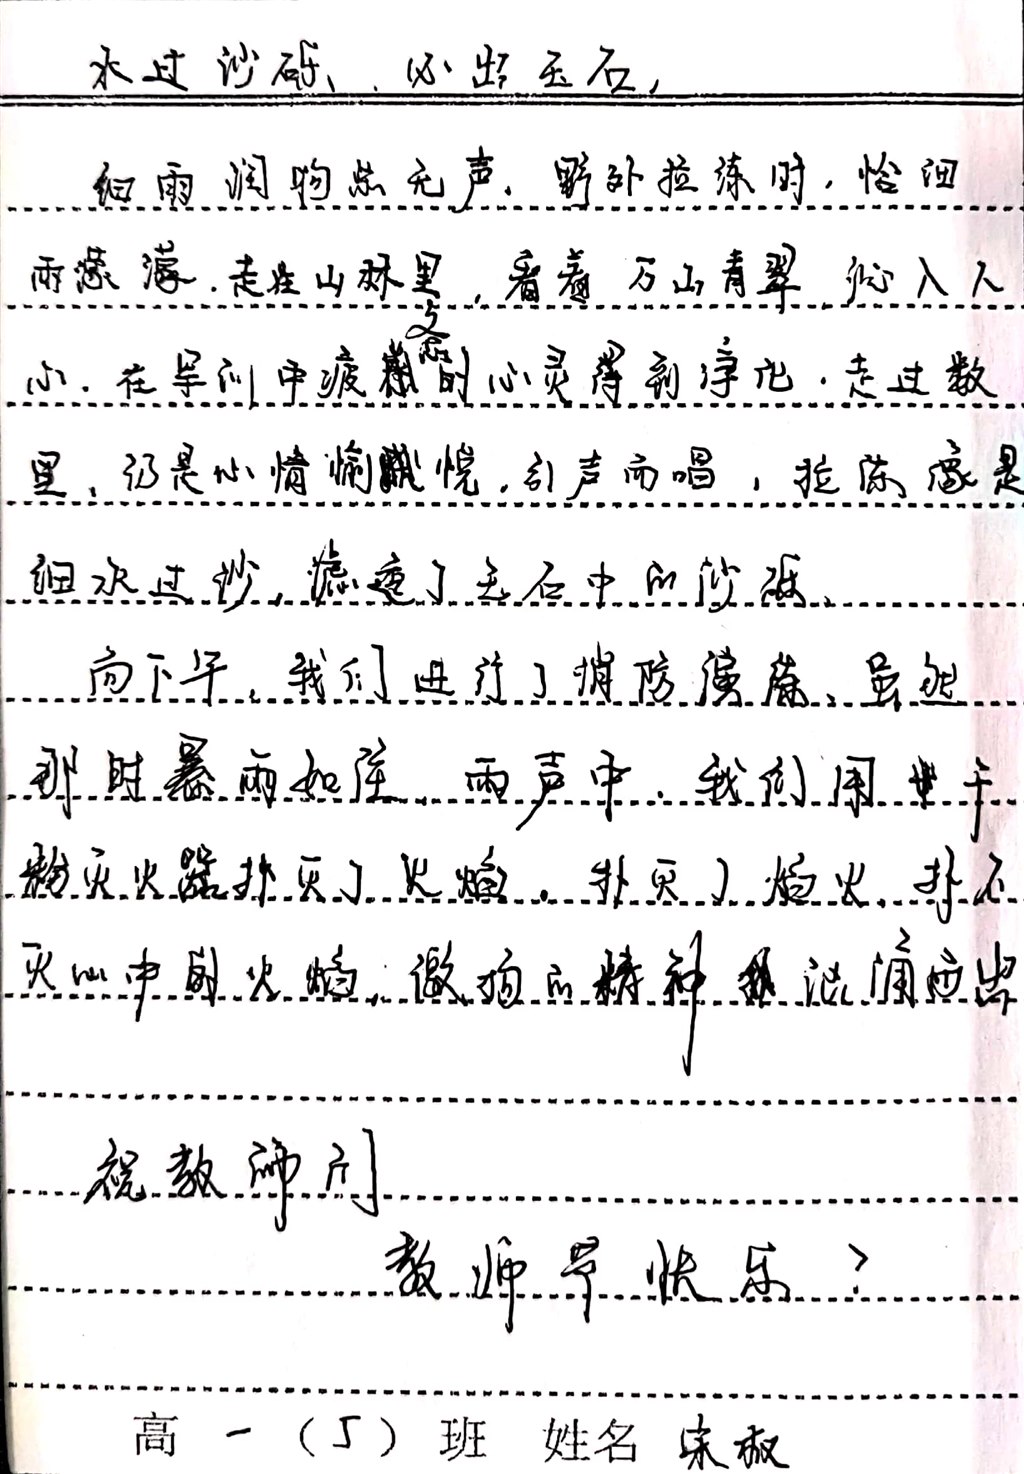 水过沙砾、必出玉石，
细雨润物总无声。野外拉练时，恰细
雨濛濛。走在山林里，看着万山青翠 沁入人
心。在军训中疲惫的心灵得到净化。走过数
里，仍是心情愉悦，引声而唱，拉练像是
细水过沙，滤走了玉石中的沙砾。
而下午，我们进行了消防演练，虽然
那时暴雨如注，雨声中，我们用干
粉灭火器扑灭了火焰。扑灭了焰火，扑不
灭心中的火焰，激扬的精神汹涌而出
祝教师们
教师节快乐？
高一（5）班 姓名 宋